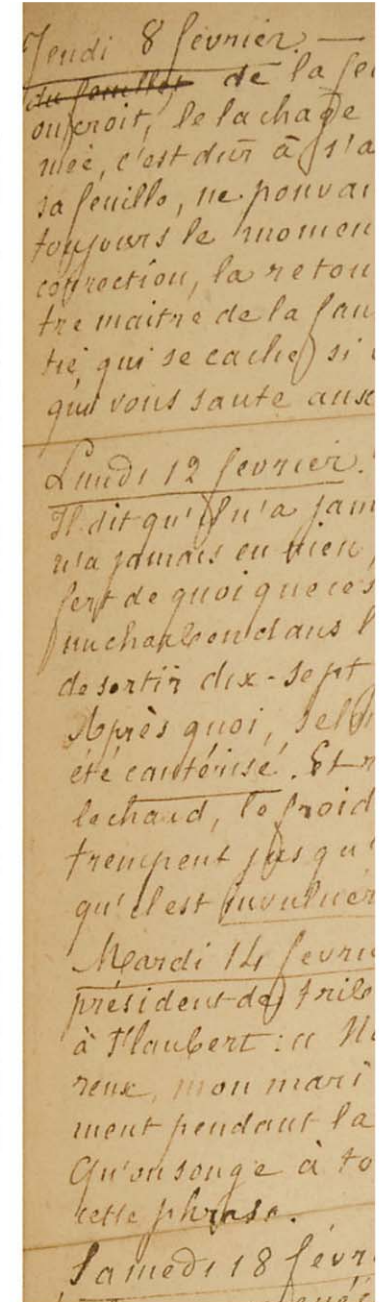 Jeudi 8 février. —
du feuillet de la feu
on croit, le la chade
mée, c'est dur à s'a
sa feuille, ne pouvai
toujours le momen
correction, la retou
tre maitre de la fau
tié, qui se cache, si
qui vous saute aux
Lundi 12 février.
Il dit qu'il n'a jam
n'a jamais eu rien,
fert de quoi que ce s
un charbon dans l
de sortir dix-sept
Après quoi, sel
été cautérisé. Et n
le chaud, le froid
trempent jusqu'
qu'il est invulnér
Mardi 14 févri
président des trib
à Flaubert : « M
reux, mon mari
ment pendant la
Qu'on songe à to
cette phrase.
Samedi 18 févr